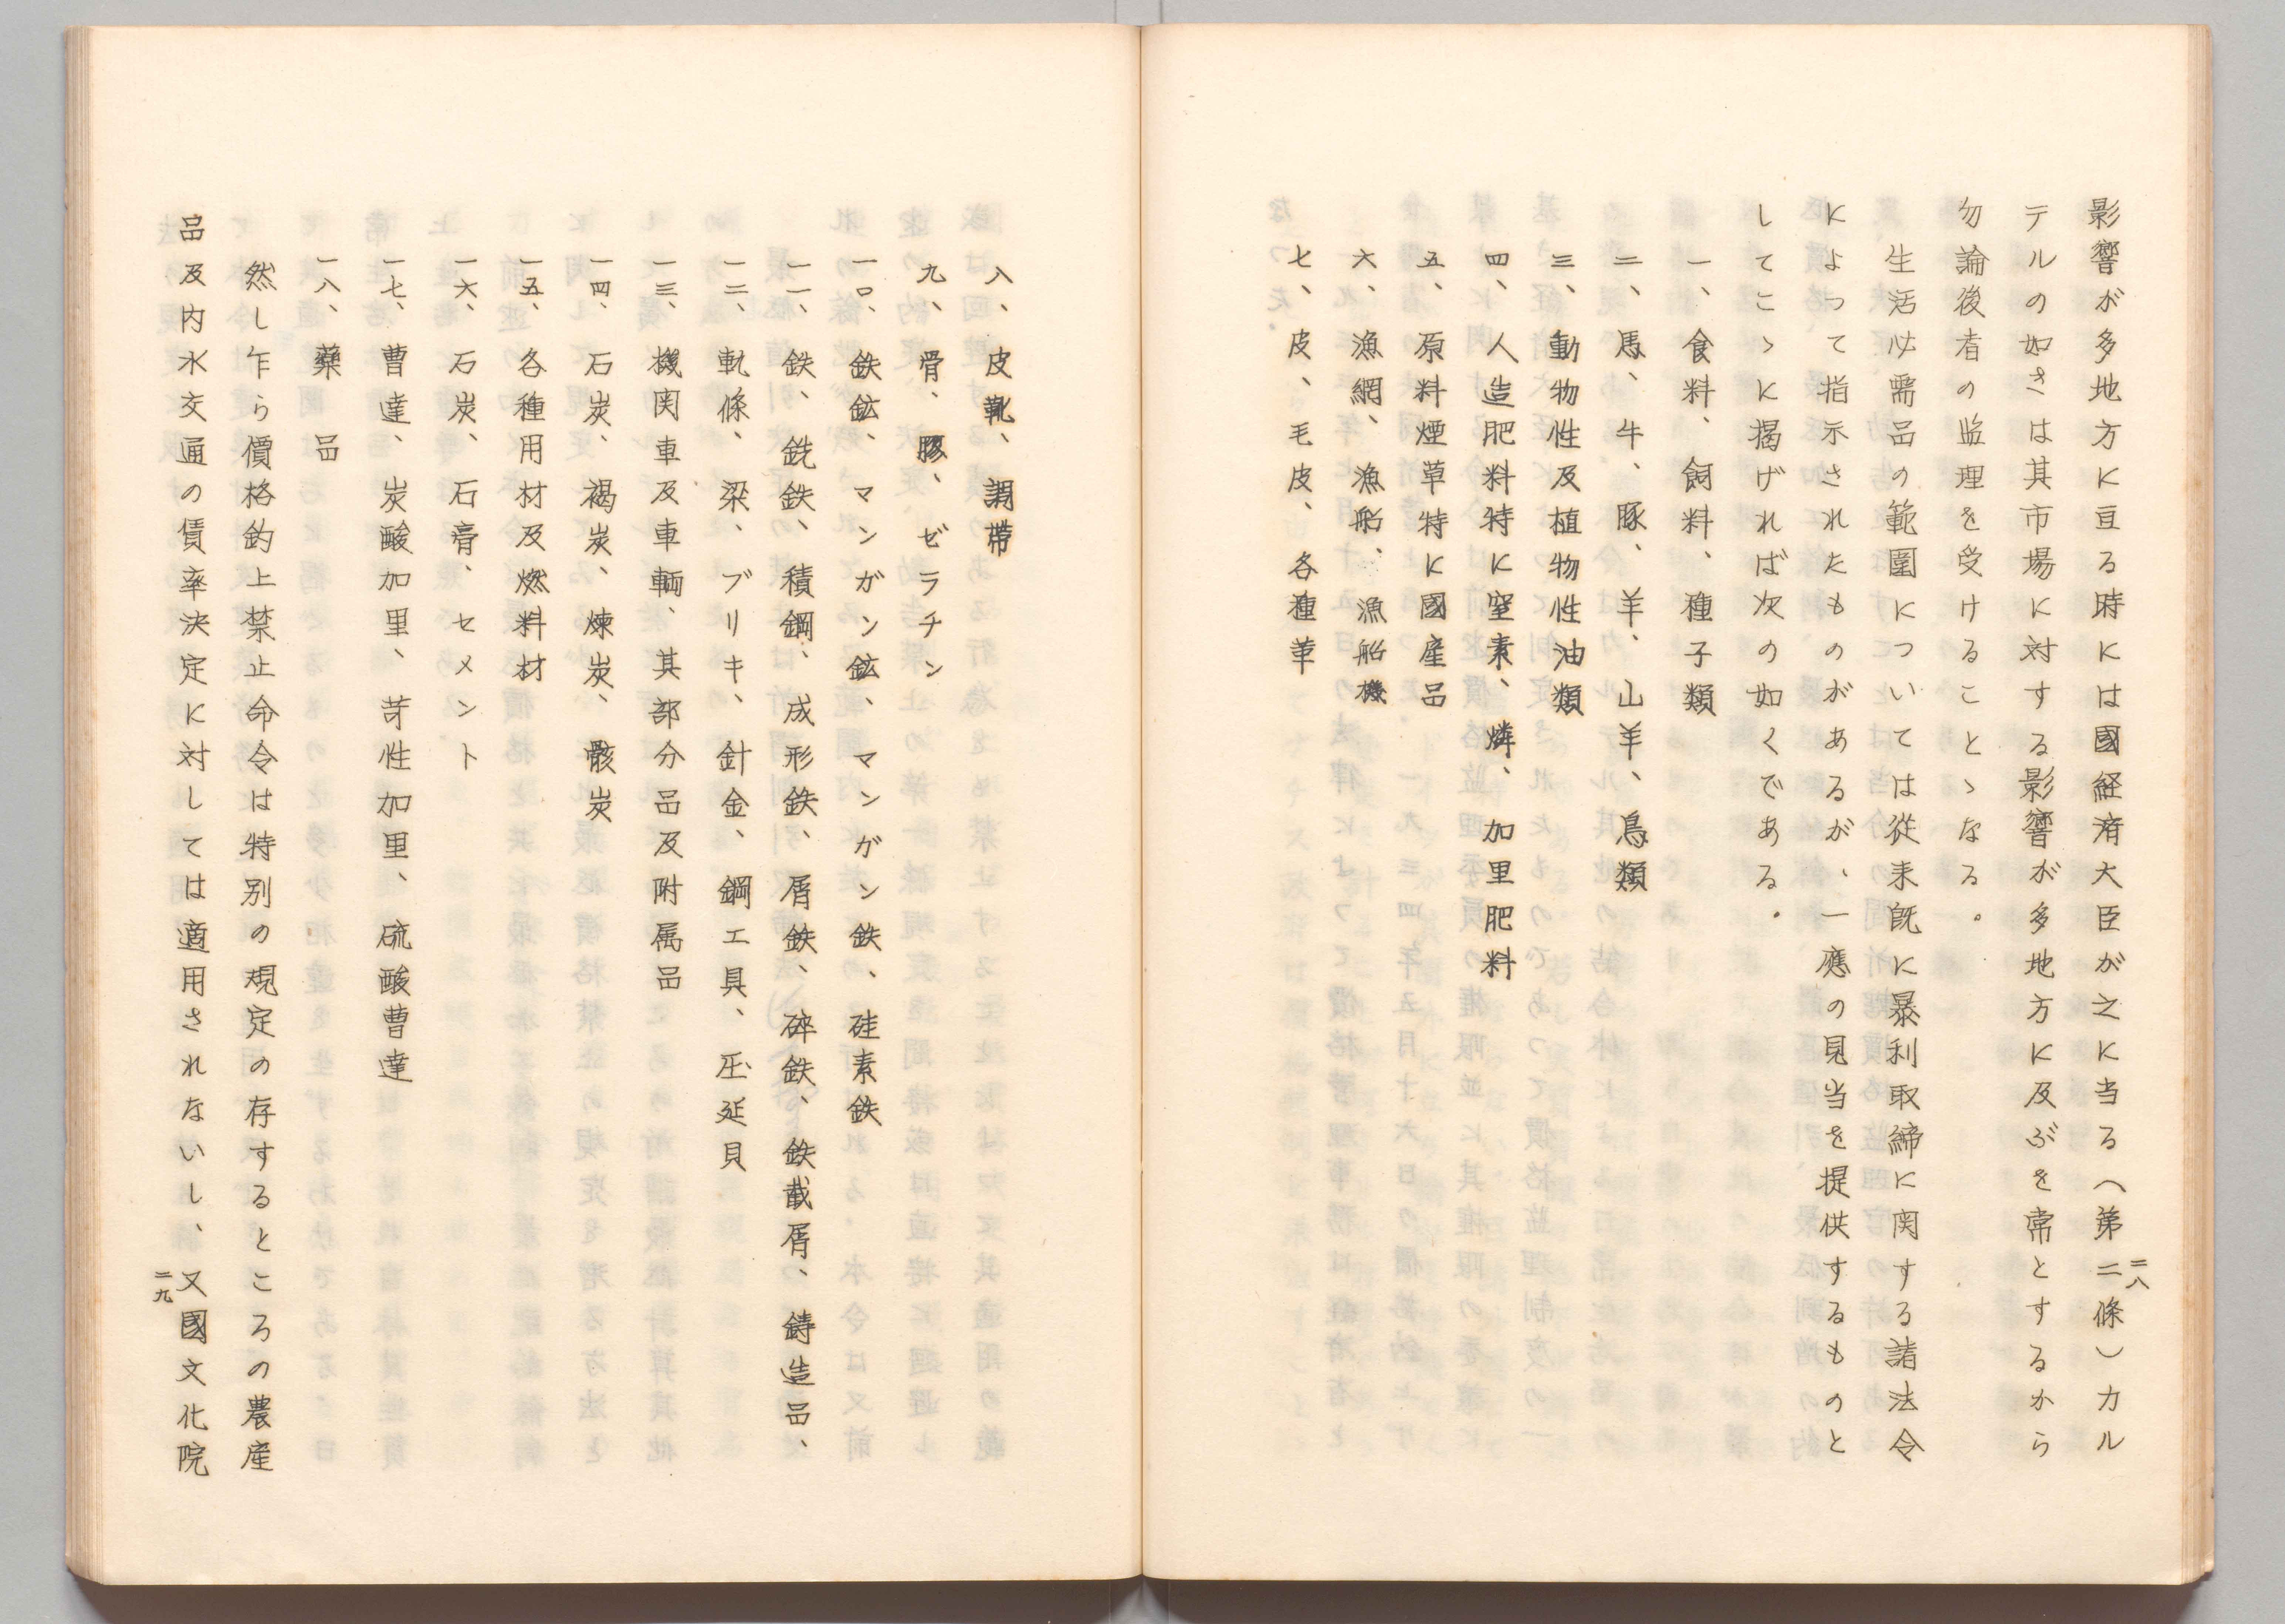 影響が多地方に亘る時には國経済大臣が之に当る（第二條）カル
テルの如きは其市場に対する影響が多地方に及ぶを常とするから
勿論後者の監理を受けることゝなる。
生活必需品の範圍については從来既に暴利取締に関する諸法令
によって指示されたものがあるが、一應の見当を提供するものと
してこゝに掲げれば次の如くである。
一、食料、飼料、種子類
二、馬、牛、豚、羊、山羊、鳥類
三、動物性及植物性油類
四、人造肥料特に窒素、燐、加里肥料
五、原料煙草特に國産品
六、漁網、漁船、漁船機
七、皮、毛皮、各種革
二八
八、皮靴、調帯
九、骨、豚、ゼラチン
一〇、鉄鉱、マンガン鉱、マンガン鉄、硅素鉄
一一、鉄、銑鉄、積鋼、成形鉄、屑鉄、碎鉄、鉄截屑、鋳造品、
一二、軌條、梁、ブリキ、針金、鋼工具、圧延貝
一三、機関車及車輌、其部分品及附属品
一四、石炭、褐炭、煉炭、骸炭
一五、各種用材及燃料材
一六、石炭、石膏、セメント
一七、曹達、炭酸加里、苛性加里、硫酸曹達
一八、藥品
然し乍ら價格釣上禁止命令は特別の規定の存するところの農産
品及内水交通の賃率決定に対しては適用されないし、又國文化院
二九